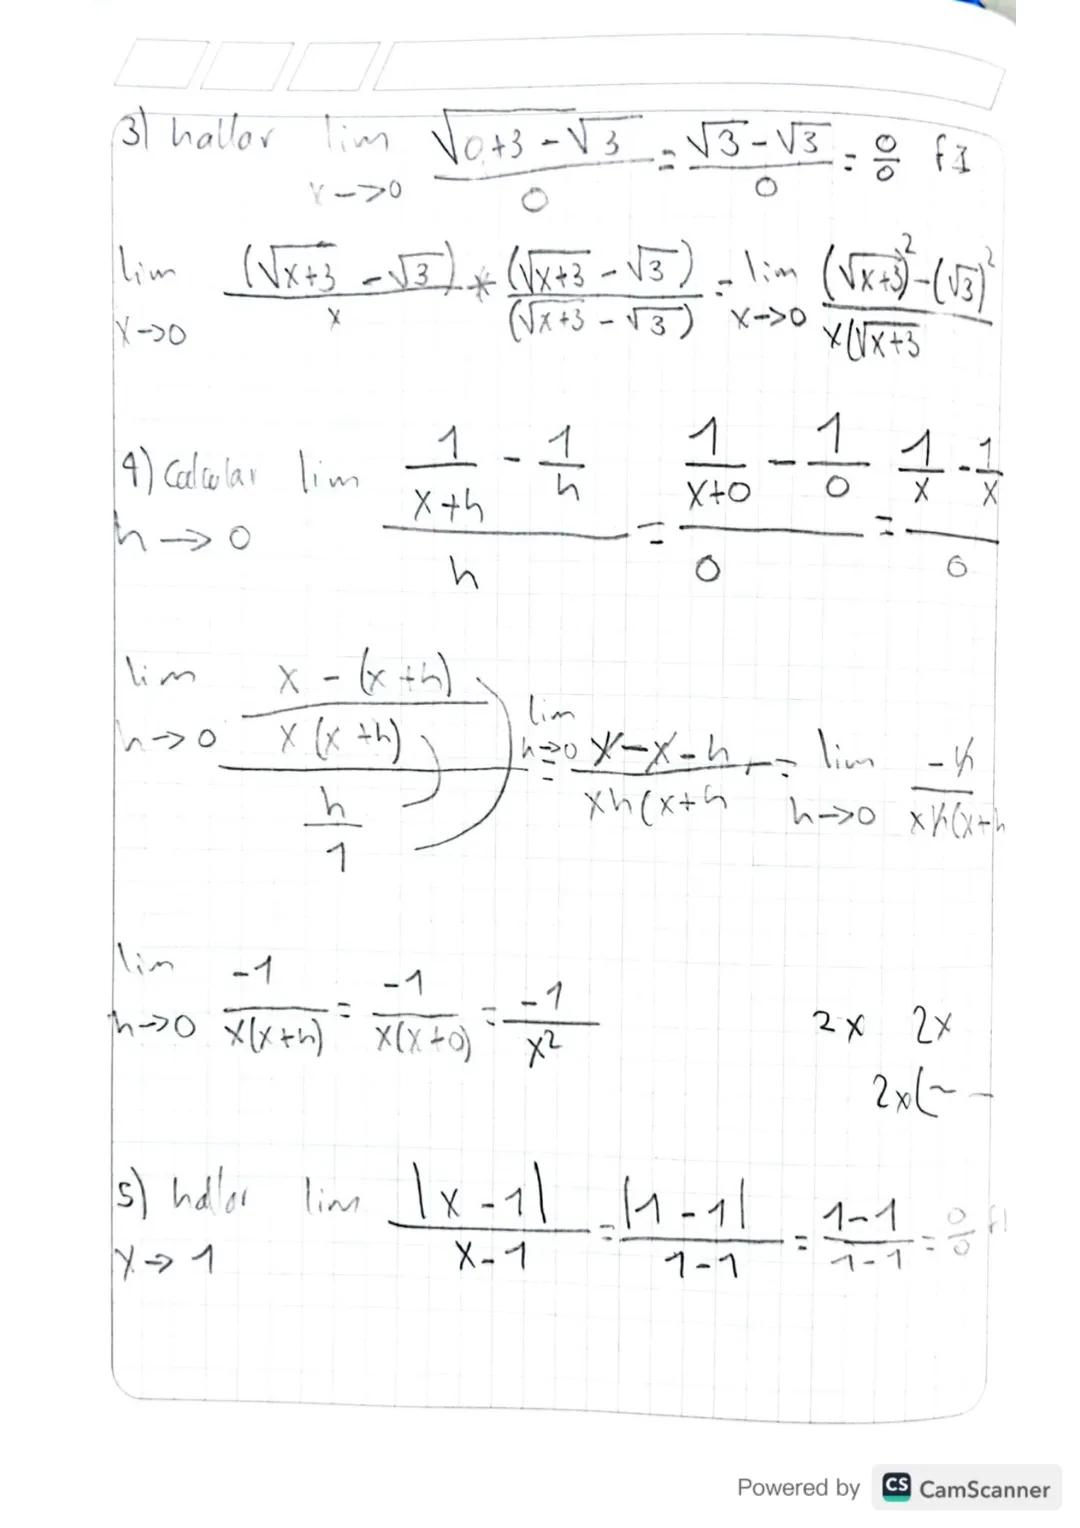 3) hallar lim √0+3 - √3 / 0 = √3 - √3 / 0 = 0/0 fI
x->0
lim (√x+3 - √3) / x * (√x+3 - √3) / (√x+3 - √3) = lim (√x+3)² - (√3)² / x(√x+3
x->0 x->0
4) Calcular lim 1/x+h - 1/h / h = 1/x+0 - 1/0 / 0 = 1/x - 1/x / 0
h -> 0
lim x - (x+h) / x(x+h) / h/1 = lim x-x-h / xh(x+h = lim -h / xh(x+h
h->0 h->0 h->0
lim -1 / x(x+h) = -1 / x(x+0) = -1 / x²
h->0
2x 2x
2x(~ -
5) hallar lim |x-1| / x-1 = |1-1| / 1-1 = 1-1 / 1-1 = 0/0 f
x -> 1
Powered by CS CamScanner